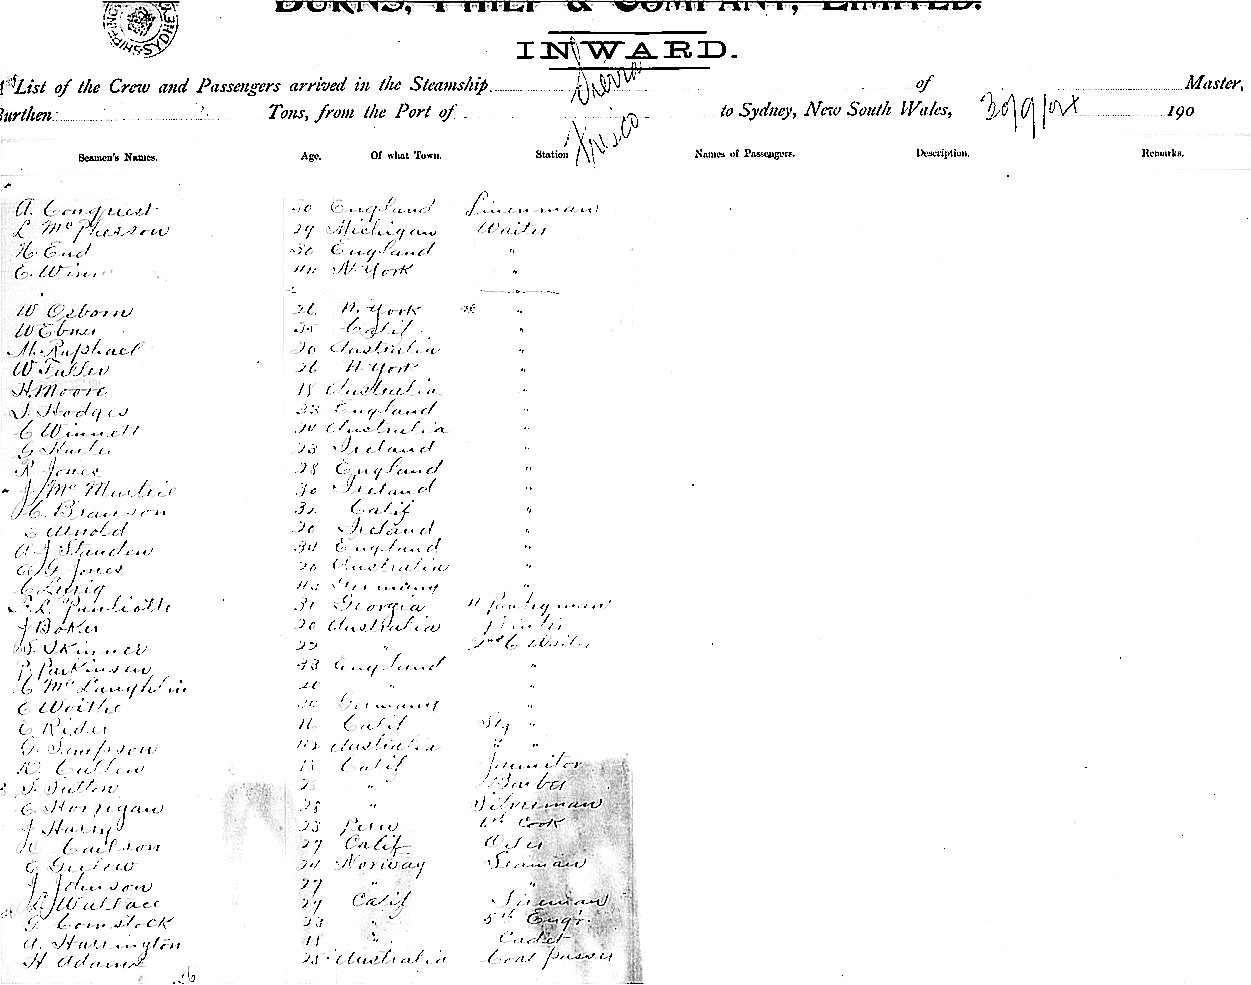 BURNS, PHILP & COMPANY, LIMITED.
INWARD.
List of the Crew and Passengers arrived in the Steamship Sierra of Master,
Burthen Tons, from the Port of Frisco to Sydney, New South Wales, 30/9/04 190
Seamen's Names. Age. Of what Town. Station Names of Passengers. Description. Remarks.
A. Conquest 30 England Linenman
L McPherson 29 Michigan Waiter
H. End 30 England "
E. Winn 44 N. York "
W Osborn 26 N. York "
W Ebner 35 Calif. "
M. Raphael 20 Australia "
W Fuller 26 N York "
H. Moore 18 Australia "
T. Hodges 23 England "
C Winnett 24 Australia "
G 23 Ireland "
R Jones 28 England "
J Mc 30 Ireland "
C. Branson 32 Calif "
E Arnold 20 Ireland "
A J Standen 34 England "
A G Jones 20 Australia "
C 42 Germany "
31 Georgia Pantryman
J Boker 20 Australia Printer
S. Skinner 22 " 2nd C Waiter
P. Parkinson 43 England "
C McLaughlin 20 " "
E Woithe 24 Germany "
E Rider 26 Calif Stg "
G. Simpson 42 Australia " "
D. Cullen 18 Calif Jannitor
S. Sutton 28 " Barber
C Horrigan 25 " Silverman
J Harry 23 Peru Cook
Carlson 27 Calif Oiler
24 Norway Seaman
J Johnson 27 " "
G Wallace 27 Calif Fireman
G. Comstock 23 " 5th Engr.
A. Harrington 18 " Cadet
H Adams 25 Australia Coal passer